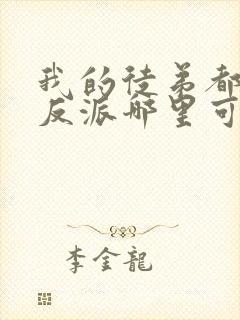 我的徒弟都
反派哪里可
李金龍